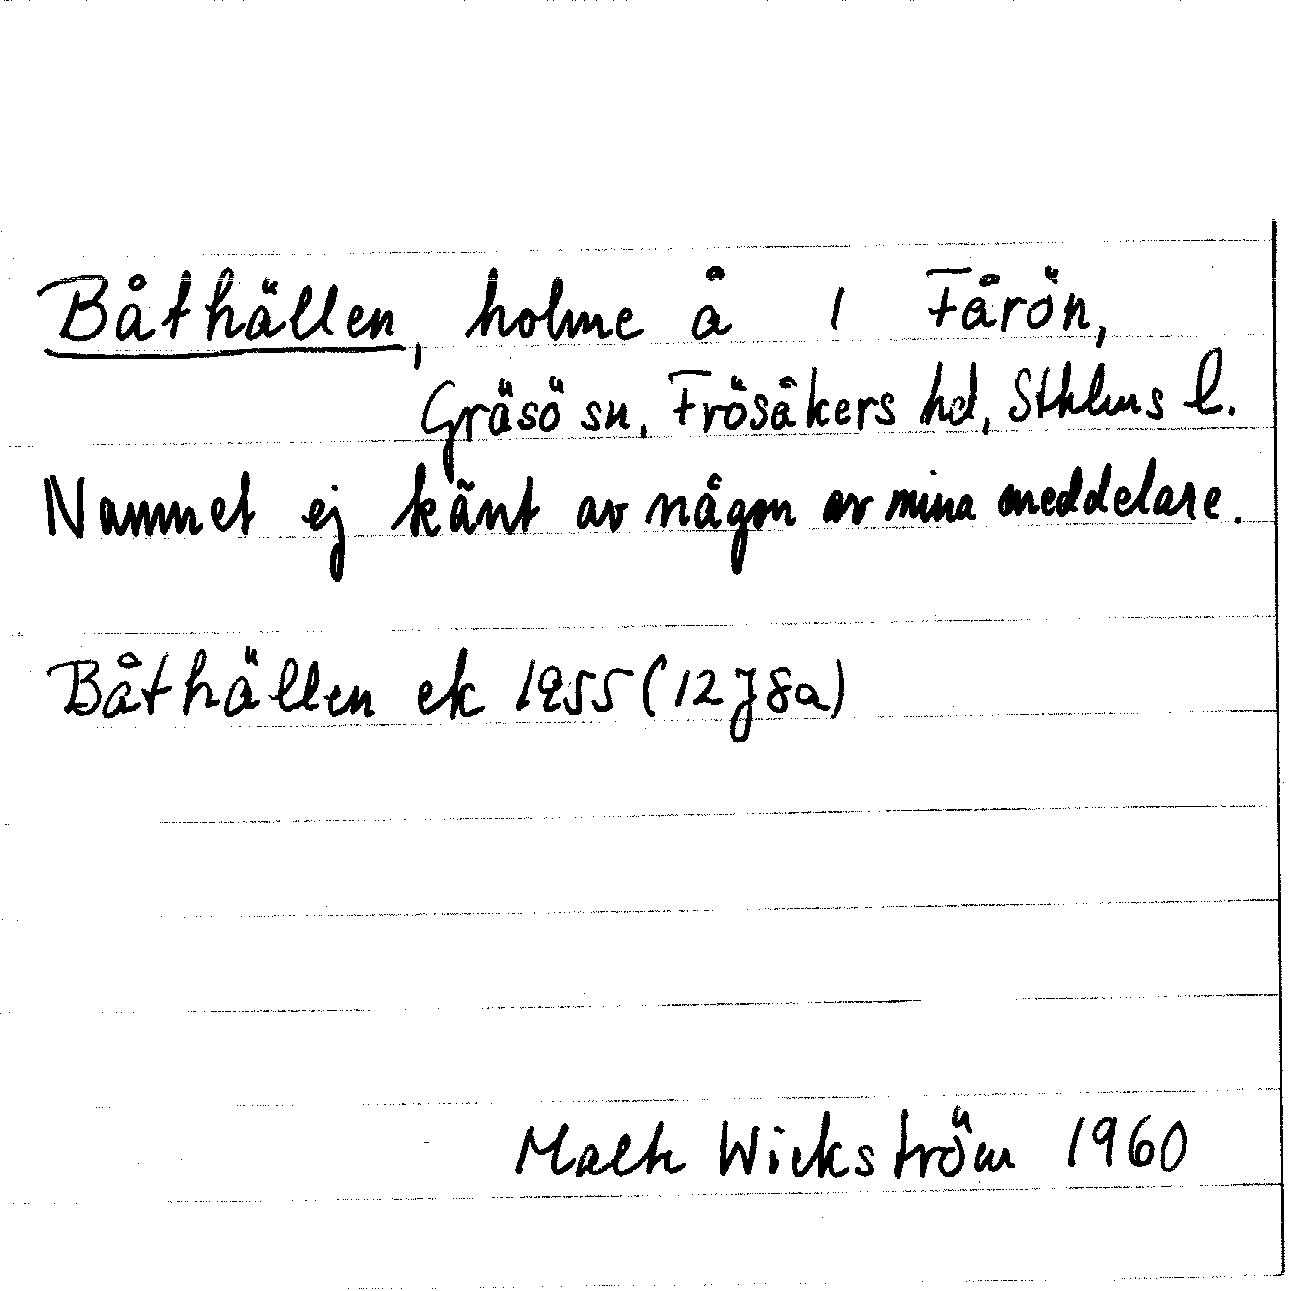 Båthällen, holme å 1 Fårön,
Gräsö sn, Frösåkers hd, Sthlms l.
Namnet ej känt av någon av mina meddelare.
Båthällen ek 1955 (12 J 8a)
Malte Wickström 1960